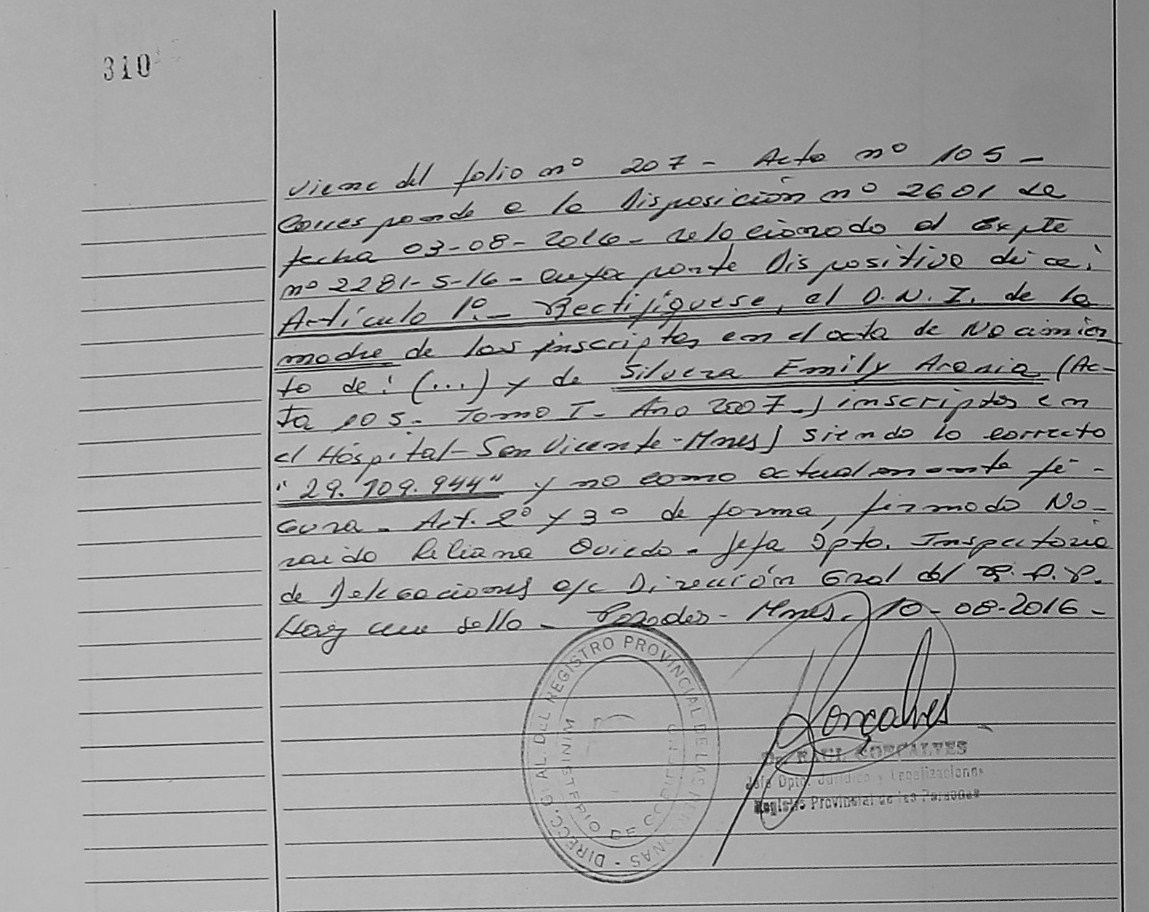 310
viene del folio nº 207 - Acta nº 105 -
Corresponde a la Disposición nº 2601 de
fecha 03-08-2016 - relacionado al Expte
nº 2281-5-16 - cuya parte Dispositiva dice:
Artículo 1º - Rectifíquese, el D.N.I. de la
madre de los inscriptos en el acta de Nacimien
to de: (...) y de Silvera Emily Arania (Ac-
ta 105 - Tomo I - Año 2007 -) inscriptos en
el Hospital - San Vicente - Mnes) siendo lo correcto
"29.109.944" y no como actualmente fi-
gura - Art. 2º y 3º de forma, firmado No-
raida Liliana Oviedo - Jefa Dpto. Inspectoria
de Delegaciones a/c Dirección Gral del R.P.P.
Hay un sello - Posadas - Mnes. 10-08-2016 -
DIRECC. GRAL. DEL REGISTRO PROVINCIAL DE LAS PERSONAS
MINISTERIO DE GOBIERNO
Gonçalves
Dr. RAUL GONÇALVES
Jefe Dpto. Jurídico y Legalizaciones
Registro Provincial de las Personas